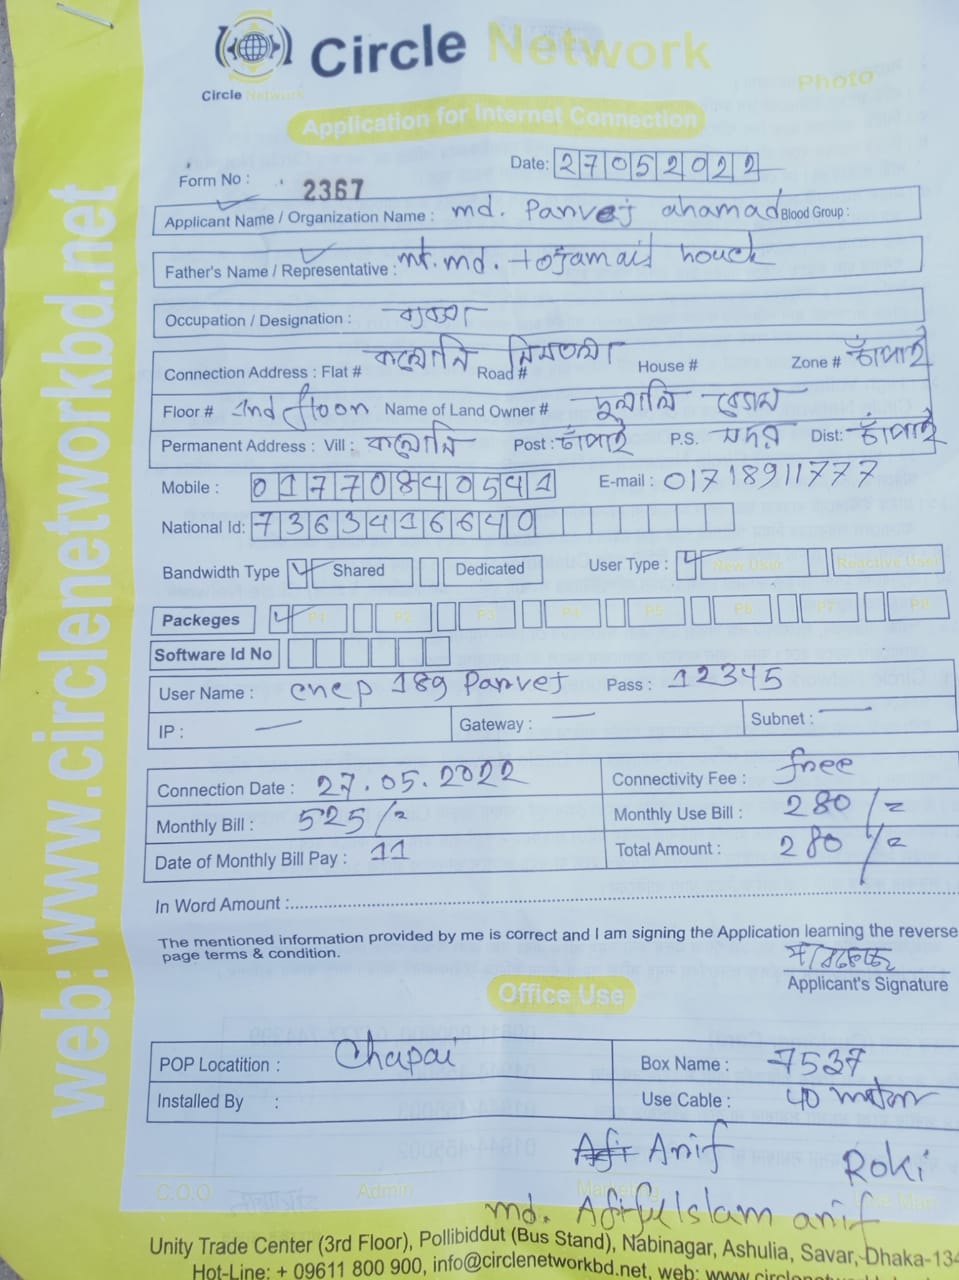 Circle Network
Circle Network
Photo
Application for Internet Connection
Form No : 2367 Date: 27052022
Applicant Name / Organization Name : md. Parvej ahamad Blood Group :
Father's Name / Representative : md. tofamail houck
Occupation / Designation : ব্যবসা
Connection Address : Flat # কলোনি Road # নিমতলা House # Zone # চাঁপাই
Floor # 2nd floor Name of Land Owner #
Permanent Address : Vill : কলোনি Post : চাঁপাই P.S. সদর Dist: চাঁপাই
Mobile : 01770840541 E-mail : 01718911777
National Id: 7363416640
Bandwidth Type Shared Dedicated User Type : New User Reactive User
Packeges P1 P2 P3 P4 P5 P6 P7 P8
Software Id No
User Name : cncp 189 Parvej Pass : 12345
IP : — Gateway : — Subnet : —
Connection Date : 27.05.2022 Connectivity Fee : free
Monthly Bill : 525/= Monthly Use Bill : 280/=
Date of Monthly Bill Pay : 11 Total Amount : 280/=
In Word Amount :
The mentioned information provided by me is correct and I am signing the Application learning the reverse
page terms & condition.
Applicant's Signature
Office Use
POP Locatition : Chapai Box Name : 7537
Installed By : Use Cable : 40 meter
Arif Roki
C.O.O Admin Marketing Line Man
md. Arifulislam arif
Unity Trade Center (3rd Floor), Pollibiddut (Bus Stand), Nabinagar, Ashulia, Savar, Dhaka-134
Hot-Line: + 09611 800 900, info@circlenetworkbd.net, web: www.circlenetworkbd
web: www.circlenetworkbd.net